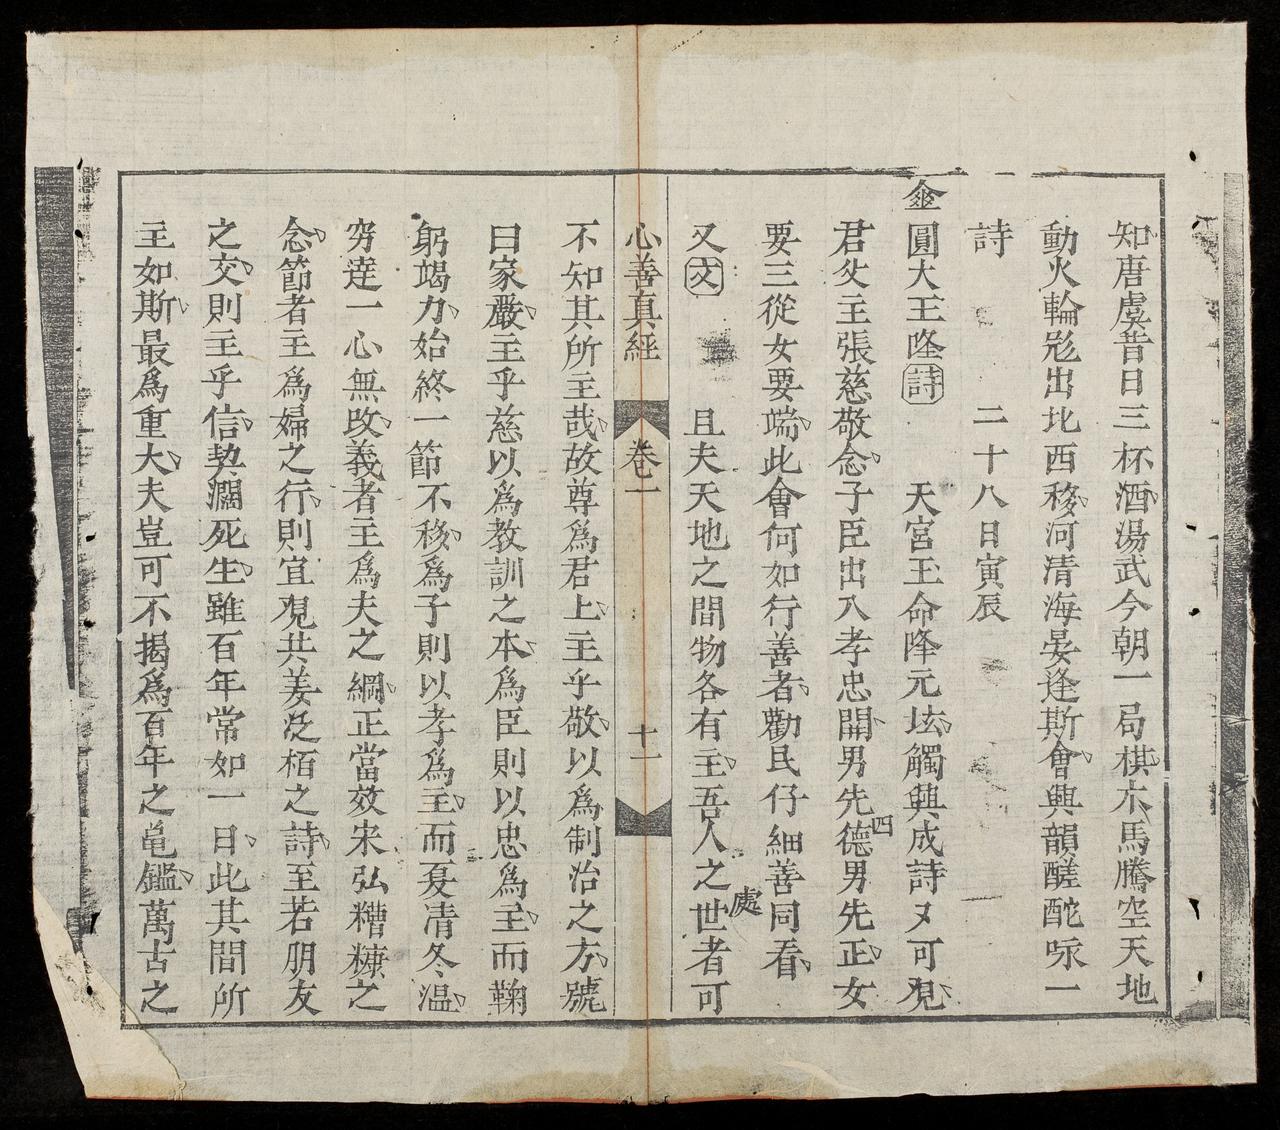 知唐虞昔日三杯酒湯武今朝一局棋木馬騰空天地
動火輪迯出北西移河清海晏逢斯會興韻醝酡咏一
詩　二十八日寅辰
傘圓大王降詩　天宮玉命降元坛觸興成詩又可覌
君父主張慈敬念子臣出入孝忠開男先四德男先正女
要三從女要端此會何如行善者勸民仔細善同看
又文　且夫天地之間物各有主吾人之世處者可
心善真經　卷一　十一
不知其所主哉故尊爲君上主乎敬以爲制治之方號
曰家嚴主乎慈以爲教訓之本爲臣則以忠爲主而鞠
躬竭力始終一節不移爲子則以孝爲主而夏凊冬温
穷達一心無改義者主爲夫之綱正當效宋弘糟糠之
念節者主爲婦之行則宜覌共姜泛栢之詩至若朋友
之交則主乎信契濶死生雖百年常如一日此其間所
主如斯最爲重大夫豈可不揭爲百年之亀鑑萬古之